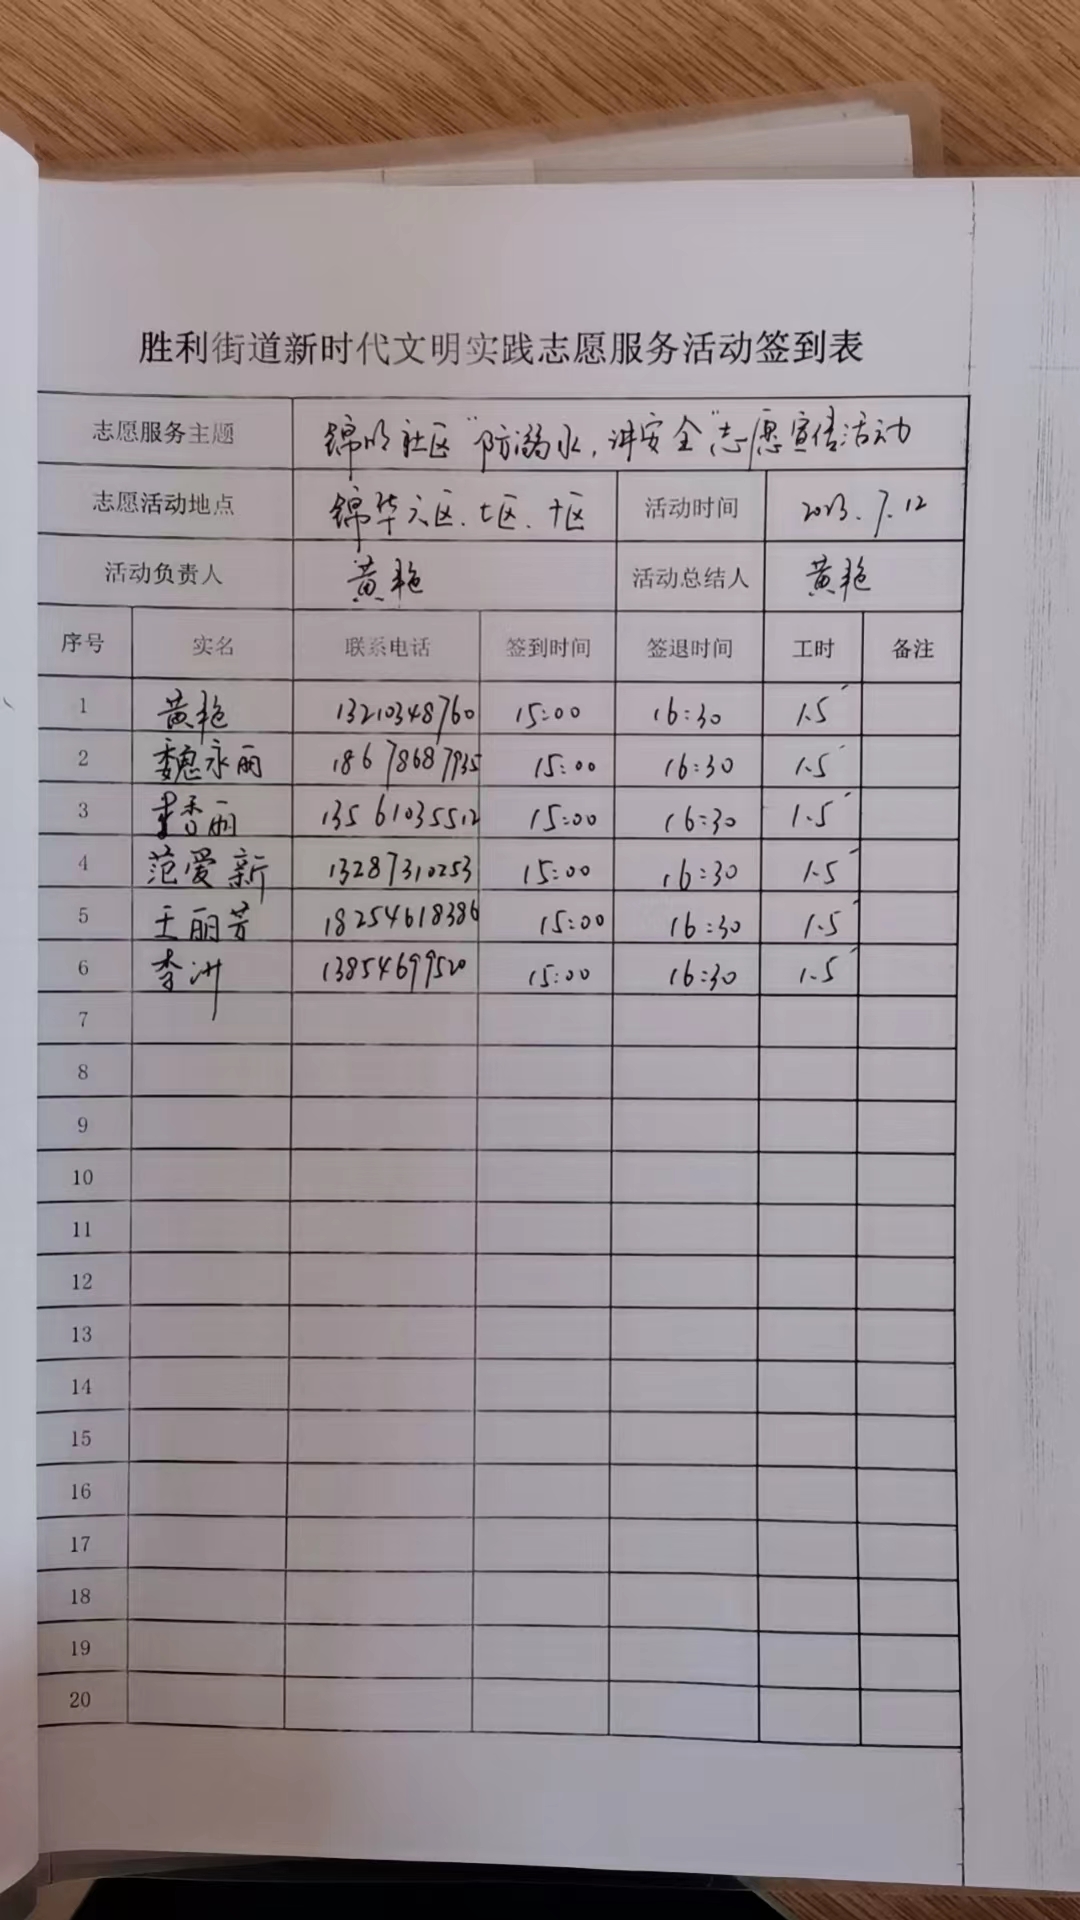 胜利街道新时代文明实践志愿服务活动签到表
志愿服务主题 锦明社区"防溺水,讲安全"志愿宣传活动
志愿活动地点 锦华六区、七区、十区 活动时间 2023.7.12
活动负责人 黄艳 活动总结人 黄艳
序号 实名 联系电话 签到时间 签退时间 工时 备注
1 黄艳 13210348760 15:00 16:30 1.5
2 魏永丽 18678687935 15:00 16:30 1.5
3 香丽 13561035512 15:00 16:30 1.5
4 范爱新 13287310253 15:00 16:30 1.5
5 王丽芳 18254618386 15:00 16:30 1.5
6 李洲 13854699520 15:00 16:30 1.5
7
8
9
10
11
12
13
14
15
16
17
18
19
20